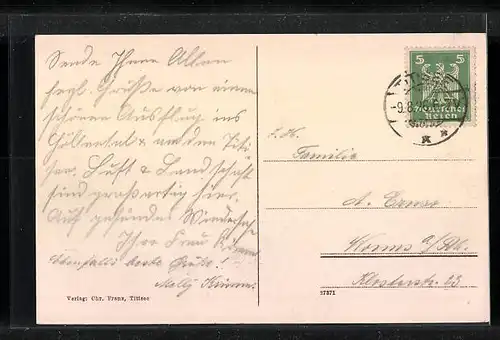 Sende Ihnen Allen
hrzl. Grüße von einem
schönen Ausflug ins
Höllental & an den Titi-
see. Luft & Landschaft
sind großartig hier.
Auf gesundes Wiederseh
Ihre Frau
Ebenfalls beste Grüße!
Melly
Verlag: Chr. Franz, Titisee
5 5
Deutsches
Reich
TITISEE
-9.8.
S. H.
Familie
A.
Worms a/Rh.
Klosterstr. 23
27371